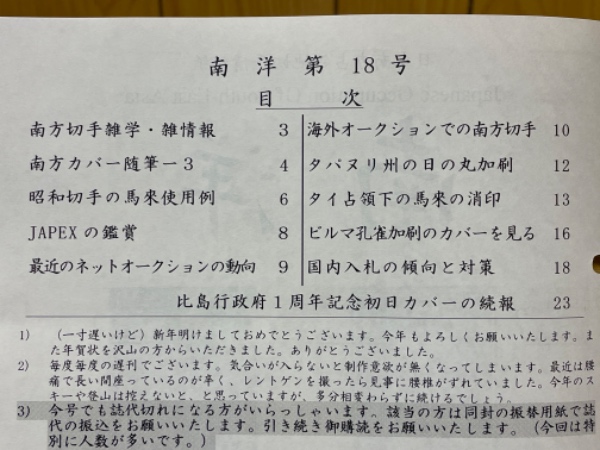 南 洋 第 18 号
目 次
南方切手雑学・雑情報 3
南方カバー随筆ー３ 4
昭和切手の馬來使用例 6
JAPEX の鑑賞 8
最近のネットオークションの動向 9
海外オークションでの南方切手 10
タパヌリ州の日の丸加刷 12
タイ占領下の馬來の消印 13
ビルマ孔雀加刷のカバーを見る 16
国内入札の傾向と対策 18
比島行政府１周年記念初日カバーの続報 23
1) （一寸遅いけど）新年明けましておめでとうございます。今年もよろしくお願いいたします。ま
た年賀状を沢山の方からいただきました。ありがとうございました。
2) 毎度毎度の遅刊でございます。気合いが入らないと制作意欲が無くなってしまいます。最近は腰
痛で長い間座っているのが辛く、レントゲンを撮ったら見事に腰椎がずれていました。今年のス
キーや登山は控えないと、と思っていますが、多分相変わらずに続けるでしょう。
3) 今号でも誌代切れになる方がいらっしゃいます。該当の方は同封の振替用紙で誌
代の振込をお願いいたします。引き続き御購読をお願いいたします。（今回は特
別に人数が多いです。）